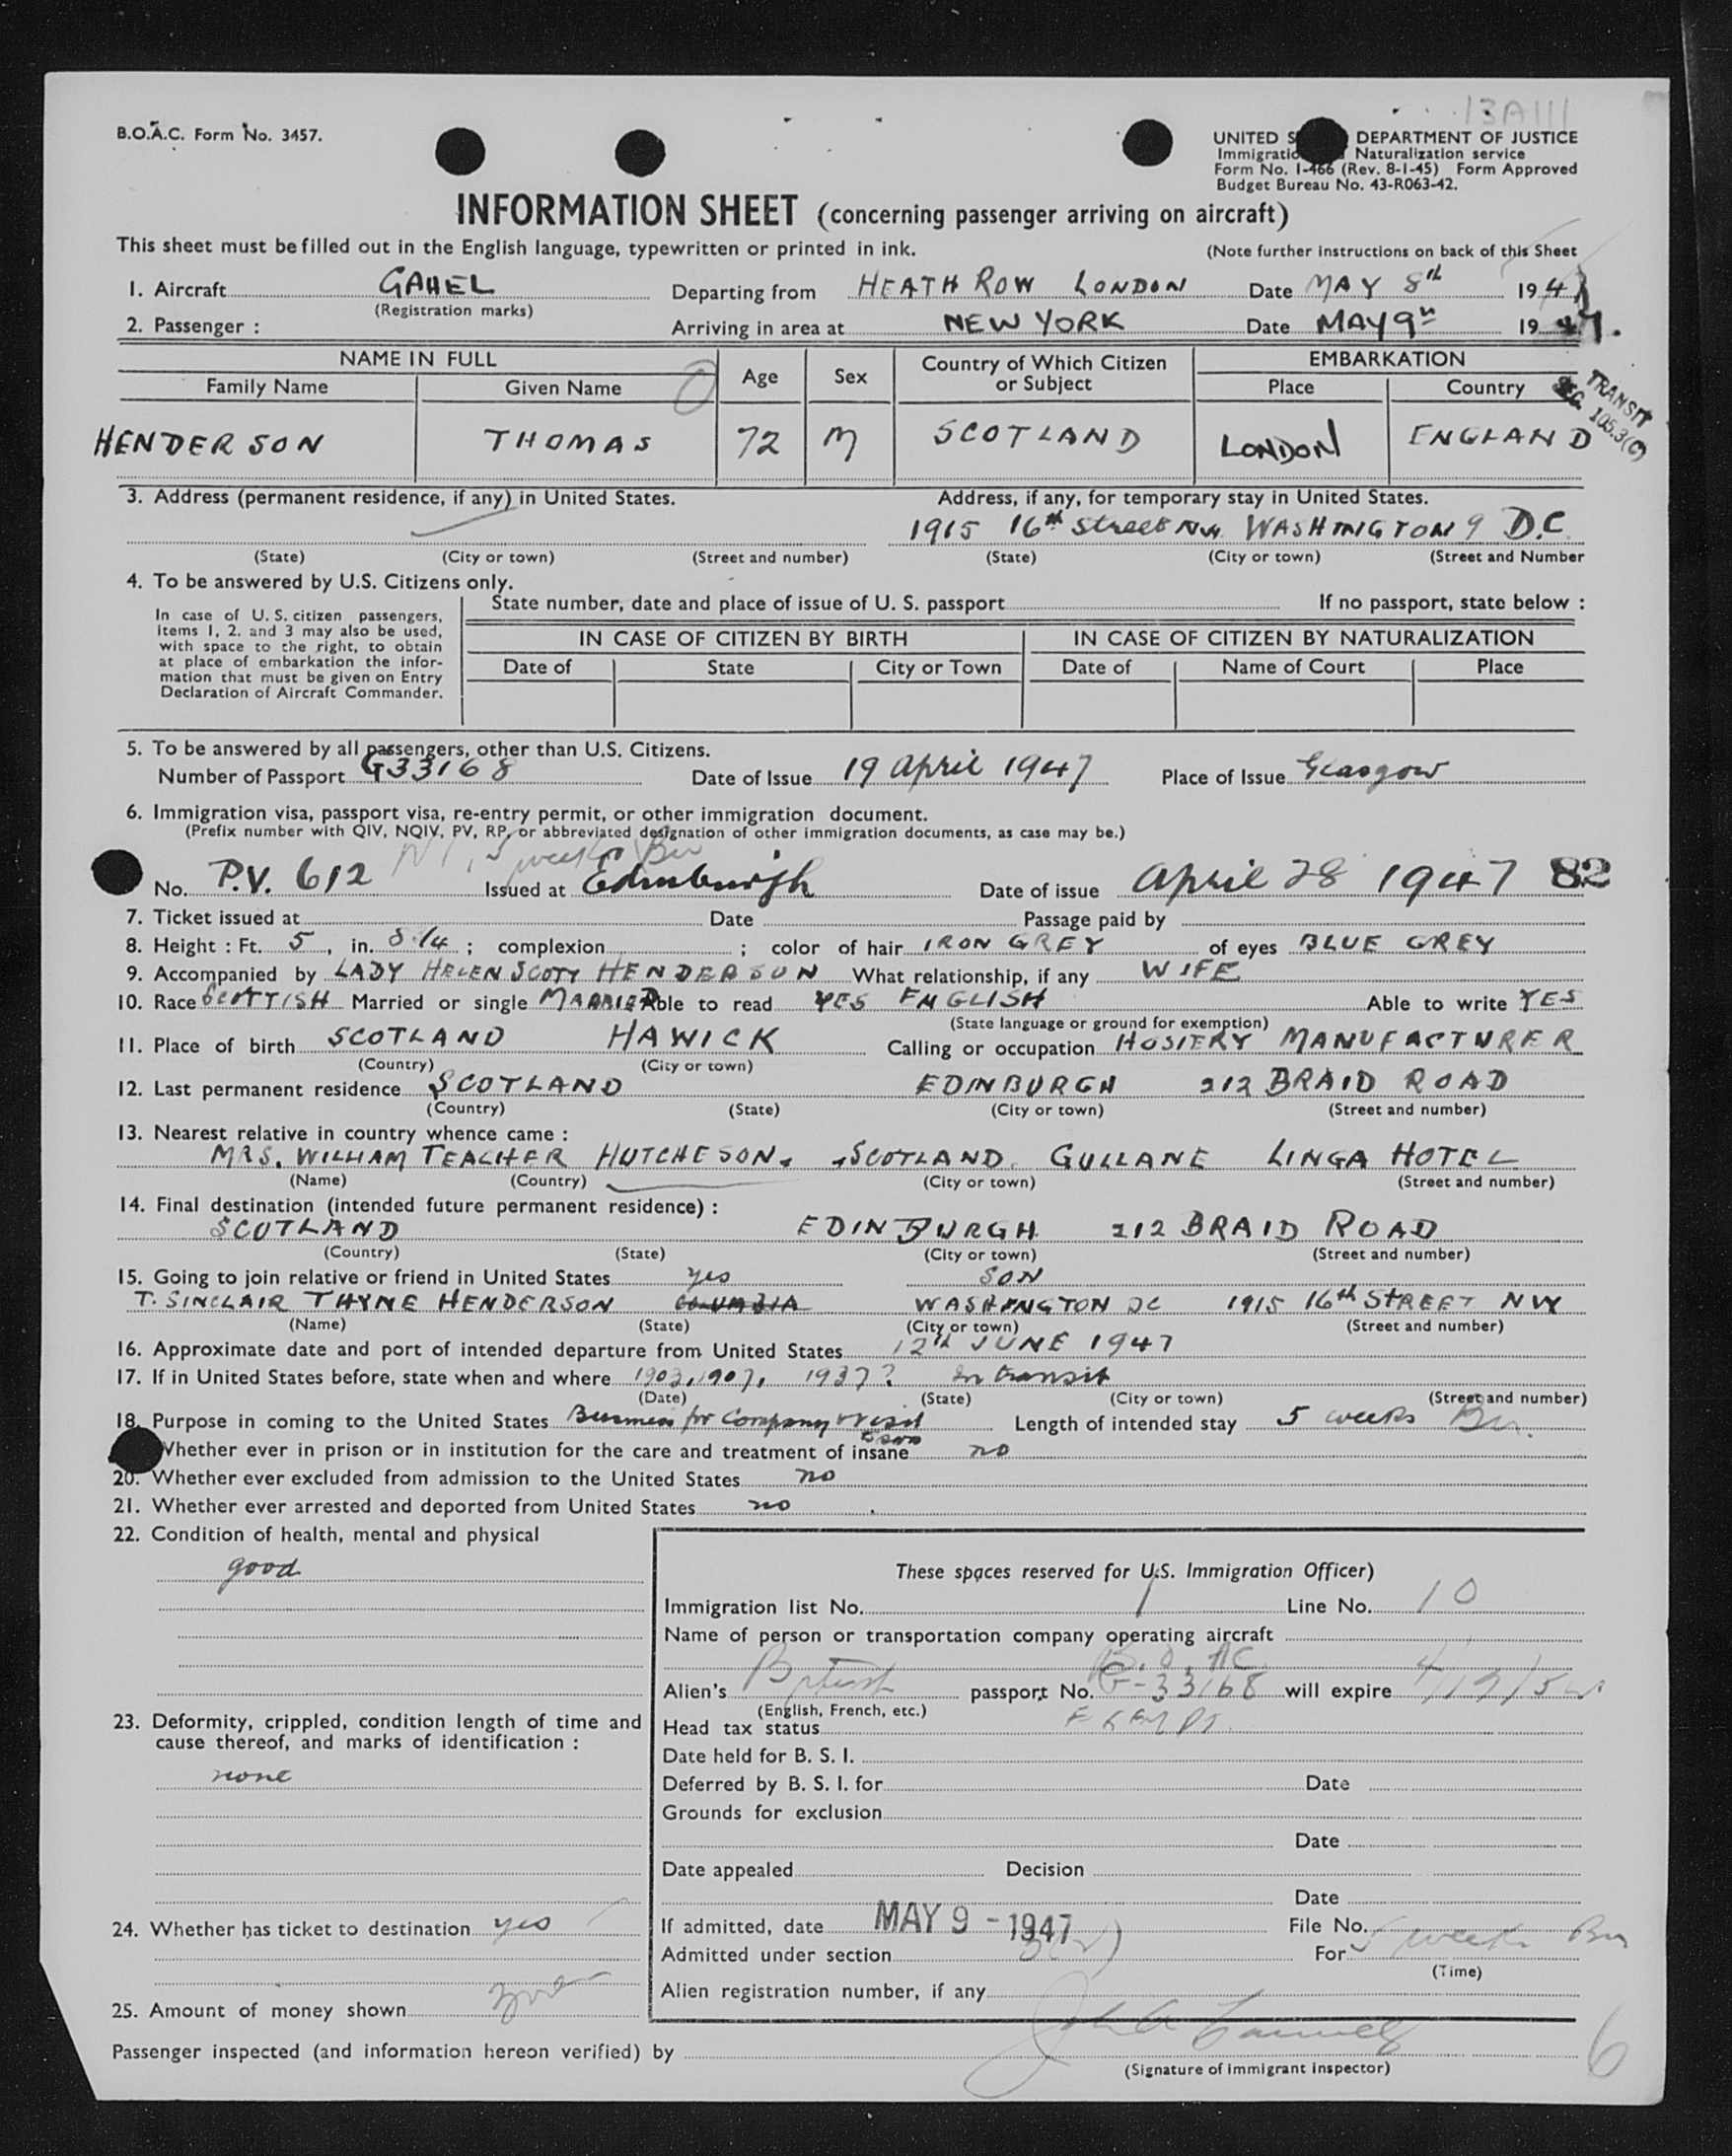 13A111
B.O.A.C. Form No. 3457.
UNITED S DEPARTMENT OF JUSTICE
Immigratio Naturalization service
Form No. I-466 (Rev. 8-1-45) Form Approved
Budget Bureau No. 43-R063-42.
INFORMATION SHEET (concerning passenger arriving on aircraft)
This sheet must be filled out in the English language, typewritten or printed in ink. (Note further instructions on back of this Sheet
1. Aircraft GAHEL Departing from HEATH ROW LONDON Date MAY 8th 1947
(Registration marks)
2. Passenger : Arriving in area at NEW YORK Date MAY 9th 1947.
NAME IN FULL Age Sex Country of Which Citizen or Subject EMBARKATION
Family Name Given Name Place Country
TRANSIT
SEC. 105.3(C)
HENDERSON THOMAS 72 M SCOTLAND LONDON ENGLAND
3. Address (permanent residence, if any) in United States. Address, if any, for temporary stay in United States.
1915 16th Street NW. WASHINGTON 9 D.C.
(State) (City or town) (Street and number) (State) (City or town) (Street and Number
4. To be answered by U.S. Citizens only.
In case of U.S. citizen passengers, items 1, 2, and 3 may also be used, with space to the right, to obtain at place of embarkation the information that must be given on Entry Declaration of Aircraft Commander.
State number, date and place of issue of U. S. passport If no passport, state below :
IN CASE OF CITIZEN BY BIRTH IN CASE OF CITIZEN BY NATURALIZATION
Date of State City or Town Date of Name of Court Place
5. To be answered by all passengers, other than U.S. Citizens.
Number of Passport G33168 Date of Issue 19 April 1947 Place of Issue Glasgow
6. Immigration visa, passport visa, re-entry permit, or other immigration document.
(Prefix number with QIV, NQIV, PV, RP, or abbreviated designation of other immigration documents, as case may be.)
No. P.V. 612 Issued at Edinburgh Date of issue April 28 1947 82
7. Ticket issued at Date Passage paid by
8. Height : Ft. 5, in. 8 1/4 ; complexion ; color of hair IRON GREY of eyes BLUE GREY
9. Accompanied by LADY HELEN SCOTT HENDERSON What relationship, if any WIFE
10. Race SCOTTISH Married or single MARRIED Able to read YES ENGLISH Able to write YES
(State language or ground for exemption)
11. Place of birth SCOTLAND HAWICK Calling or occupation HOSIERY MANUFACTURER
(Country) (City or town)
12. Last permanent residence SCOTLAND EDINBURGH 212 BRAID ROAD
(Country) (State) (City or town) (Street and number)
13. Nearest relative in country whence came :
MRS. WILLIAM TEACHER HUTCHESON. SCOTLAND. GULLANE LINGA HOTEL
(Name) (Country) (City or town) (Street and number)
14. Final destination (intended future permanent residence) :
SCOTLAND EDINBURGH 212 BRAID ROAD
(Country) (State) (City or town) (Street and number)
15. Going to join relative or friend in United States yes SON
T. SINCLAIR THYNE HENDERSON COLUMBIA WASHINGTON DC 1915 16th STREET NW
(Name) (State) (City or town) (Street and number)
16. Approximate date and port of intended departure from United States 12th JUNE 1947
17. If in United States before, state when and where 1903, 1907, 1937? In transit
(Date) (State) (City or town) (Street and number)
18. Purpose in coming to the United States Business for Company & visit to son Length of intended stay 5 weeks
Whether ever in prison or in institution for the care and treatment of insane no
20. Whether ever excluded from admission to the United States no
21. Whether ever arrested and deported from United States no
22. Condition of health, mental and physical
good
These spaces reserved for U.S. Immigration Officer)
Immigration list No. 1 Line No. 10
Name of person or transportation company operating aircraft
B.O.AC
Alien's British passport No. G-33168 will expire 4/19/52
(English, French, etc.)
Head tax status EXEMPT
23. Deformity, crippled, condition length of time and cause thereof, and marks of identification :
none
Date held for B. S. I.
Deferred by B. S. I. for Date
Grounds for exclusion
Date
Date appealed Decision
Date
24. Whether has ticket to destination yes
If admitted, date MAY 9 - 1947 File No.
Admitted under section 3(2) For 5 weeks
(Time)
Alien registration number, if any
25. Amount of money shown
Passenger inspected (and information hereon verified) by
(Signature of immigrant inspector)
6